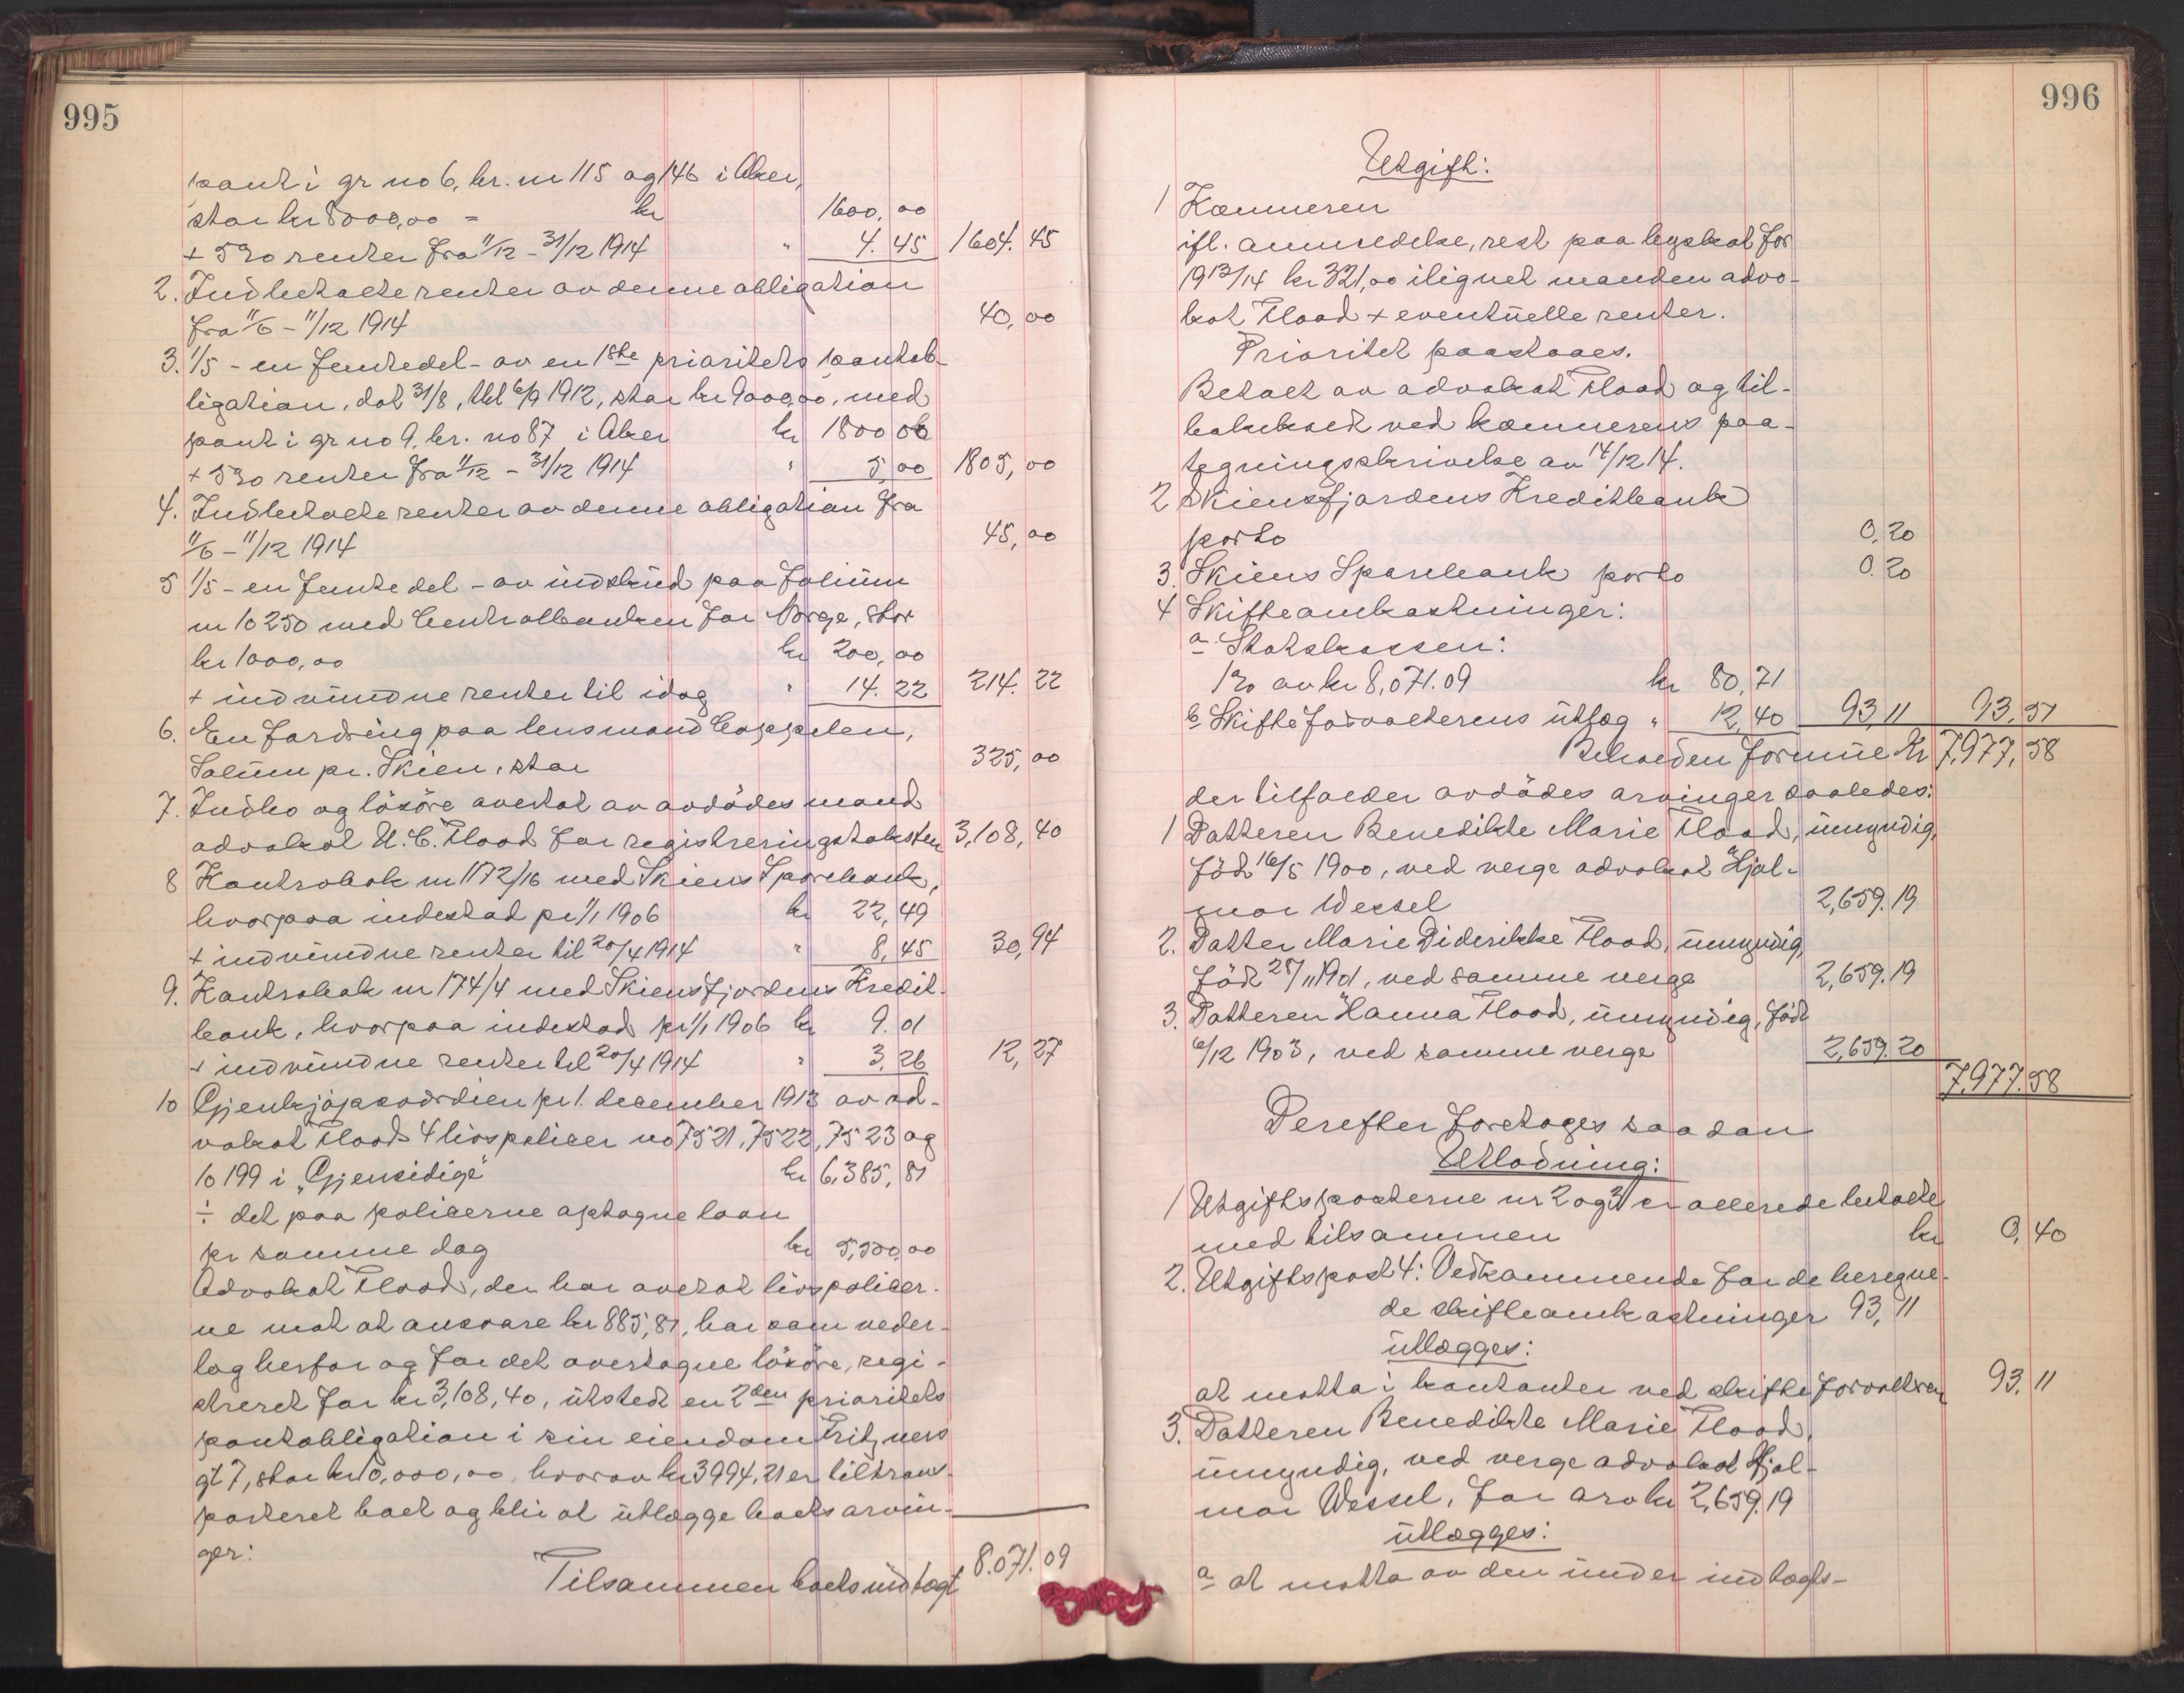 995
pant i gr no 6, br. nr 115 og 146 i Aker,
stor kr 8000,00 = kr 1600,00
+ 5% renter fra 11/12 - 31/12 1914 " 4.45 1604.45
2. Indbetalte renter av denne obligation
fra 11/6 - 11/12 1914 40,00
3. 1/5 - en femtedel - av en 1ste prioritets pantob-
ligation, dat 31/8, thl 6/9 1912, stor kr 9000,00, med
pant i gr no 9. br. no 87 i Aker kr 1800 00
+ 5% renter fra 11/12 - 31/12 1914 " 5,00 1805,00
4. Indbetalte renter av denne obligation fra
11/6 - 11/12 1914 45,00
5 1/5 - en femtedel - av indskud paa folium
nr 10250 med Centralbanken for Norge, stor
kr 1000,00 kr 200,00
+ indvundne renter til idag " 14.22 214.22
6. En fordring paa lensmand Coppelen,
Solum pr. Skien, stor 325,00
7. Indbo og lösöre overtat av avdödes mand
advokat U. C. Flood for registreringstaksten 3,108,40
8 Kontrabok nr 1172/16 med Skiens Sparebank,
hvorpaa indestod pr 1/1 1906 kr 22,49
+ indvundne renter til 20/4 1914 " 8,45 30,94
9. Kontrabok nr 174/4 med Skiensfjordens Kredit-
bank, hvorpaa indestod pr 1/1 1906 kr 9.01
+ indvundne renter til 20/4 1914 " 3,26 12,27
10 Gjenkjöpsværdien pr 1. december 1913 av ad-
vokat Floods 4 livspoliser no 7521, 7522, 7523 og
10199 i "Gjensidige" kr 6,385,81
÷ det paa poliserne optagne laan
pr samme dag kr 5,500,00
Advokat Flood, der har overtat livspoliser-
ne mot at ansvare kr 885,81, har som veder-
lag herfor og for det overtagne lösöre, regi-
streret for kr 3,108,40, utstedt en 2den prioritets
pantobligation i sin eiendom Fritzners
gt 7, stor kr 10,000,00, hvorav kr 3994,21 er tiltrans-
porteret boet og blir at utlægge boets arvin-
ger:
Tilsammen boets indtægt 8.071.09
996
Utgift:
1 Kæmneren
ifl. anmeldelse, rest paa byskat for
1913/14 kr 321,00 ilignet manden advo-
kat Flood + eventuelle renter.
Prioritet paastaaes.
Betalt av advokat Flood og til-
bakekaldt ved kæmnerens paa-
tegningsskrivelse av 14/12 14.
2 Skiensfjordens Kreditbank
porto 0,20
3. Skiens Sparebank porto 0.20
4 Skifteomkostninger:
a. Statskassen:
1% av kr 8,071.09 kr 80,71
b Skifteforvalterens utlæg " 12,40 93,11 93,51
Beholden formue kr 7,977,58
der tilfalder avdödes arvinger saaledes:
1 Datteren Benedikte Marie Flood, umyndig,
född 16/5 1900, ved verge advokat Hjal-
mar Wessel 2,659.19
2. Datter Marie Diderikke Flood, umyndig,
född 25/11 1901, ved samme verge 2,659.19
3. Datteren Hanna Flood, umyndig, född
6/12 1903, ved samme verge 2,659.20
7,977.58
Derefter foretages saadan
Utlodning:
1 Utgiftsposterne nr 2 og 3 er allerede betalte
med tilsammen kr 0,40
2. Utgiftspost 4: Vedkommende for de beregne-
de skifteomkostninger 93,11
utlægges:
at motta i kontanter ved skifteforvalteren 93,11
3. Datteren Benedikte Marie Flood,
umyndig, ved verge advokat Hjal-
mar Wessel, for arv kr 2,659.19
utlægges:
a at motta av den under indtægts-